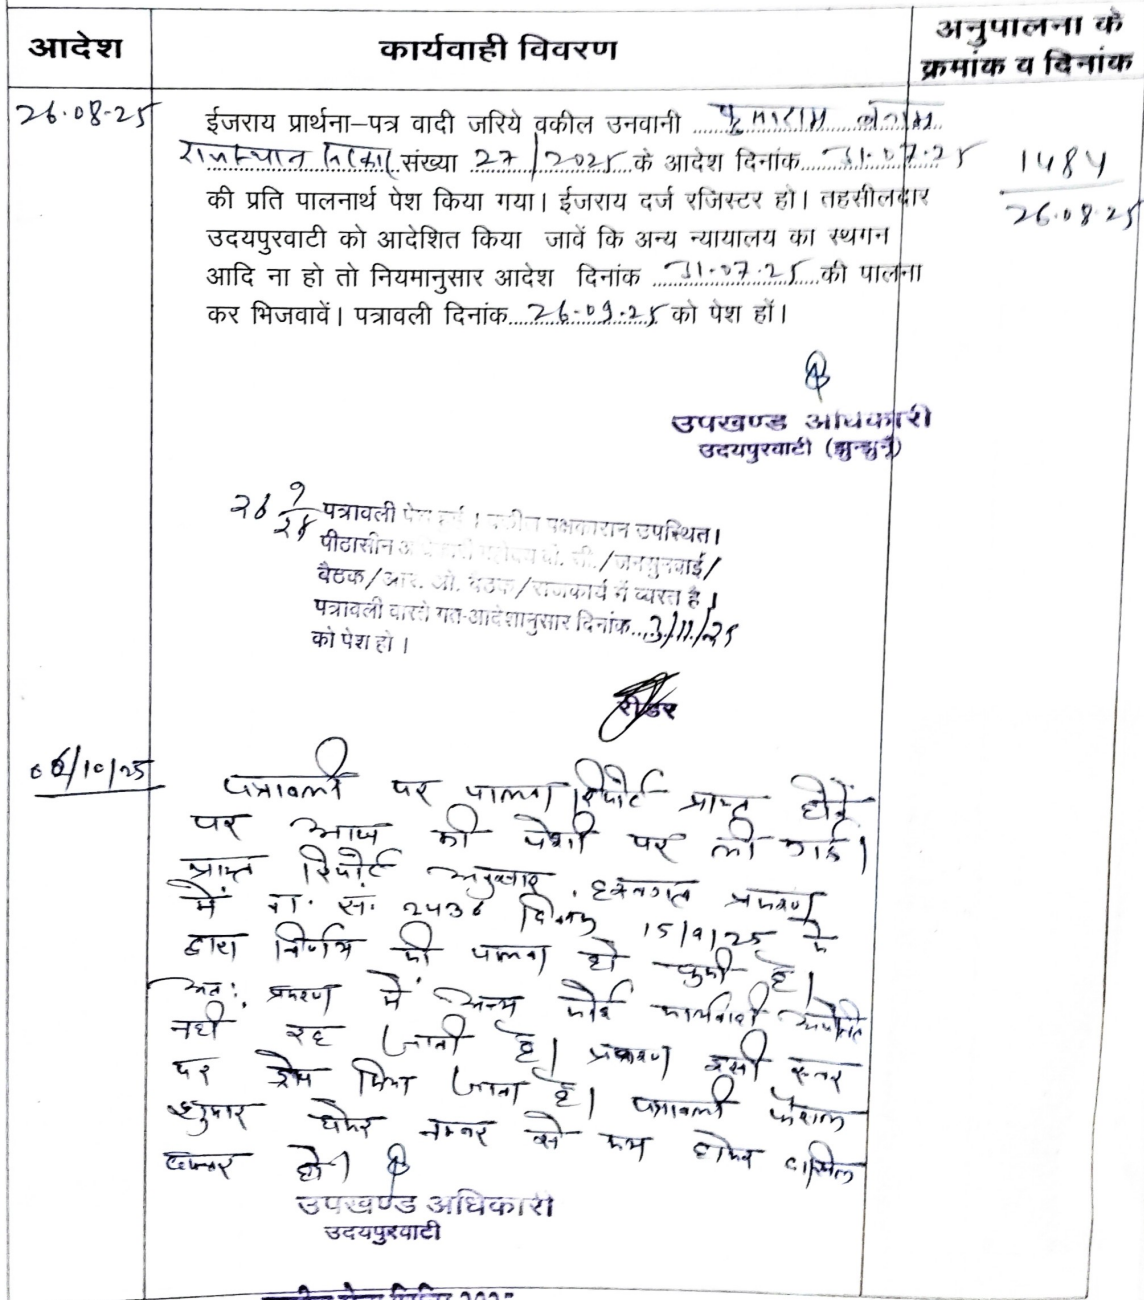 आदेश
कार्यवाही विवरण
अनुपालना के
क्रमांक व दिनांक
26.08.25
ईजराय प्रार्थना–पत्र वादी जरिये वकील उनवानी बनाम
राजस्थान सरकार संख्या 27/2025 के आदेश दिनांक 31.07.25
की प्रति पालनार्थ पेश किया गया। ईजराय दर्ज रजिस्टर हो। तहसीलदार
उदयपुरवाटी को आदेशित किया जावें कि अन्य न्यायालय का स्थगन
आदि ना हो तो नियमानुसार आदेश दिनांक 31.07.25 की पालना
कर भिजवावें। पत्रावली दिनांक 26.09.25 को पेश हों।
1484
26.08.25
उपखण्ड अधिकारी
उदयपुरवाटी (झुन्झुनूं)
26/9/25 पत्रावली पेश हुई। वकील पक्षकारान उपस्थित।
पीठासीन अधिकारी महोदय वी. सी./जनसुनवाई/
बैठक/आर. ओ. बैठक/राजकार्य में व्यस्त है।
पत्रावली वास्ते गत-आदेशानुसार दिनांक 3/11/25
को पेश हो।
रीडर
06/10/25
पत्रावली पर पालना रिपोर्ट प्राप्त होने
पर आज की पेशी पर ली गई।
प्राप्त रिपोर्ट अनुसार हस्तगत प्रकरण
में ना. सं. 2436 दिनांक 15/9/25 के
द्वारा निर्णय की पालना हो चुकी है।
अतः प्रकरण में अन्य कोई कार्यवाही अपेक्षित
नहीं रह जाती है। प्रकरण इसी स्तर
पर ड्रॉप किया जाता है। पत्रावली फैसल
शुमार होकर नम्बर से कम होकर दाखिल
दफ्तर हो।
उपखण्ड अधिकारी
उदयपुरवाटी